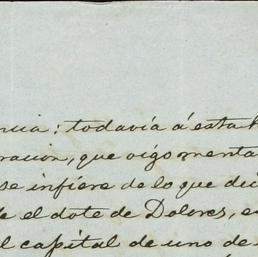 ncia: todavía á esta h
racion, que oigo menta
se infiere de lo que dic
e el dote de Dolores, e
l capital de uno de